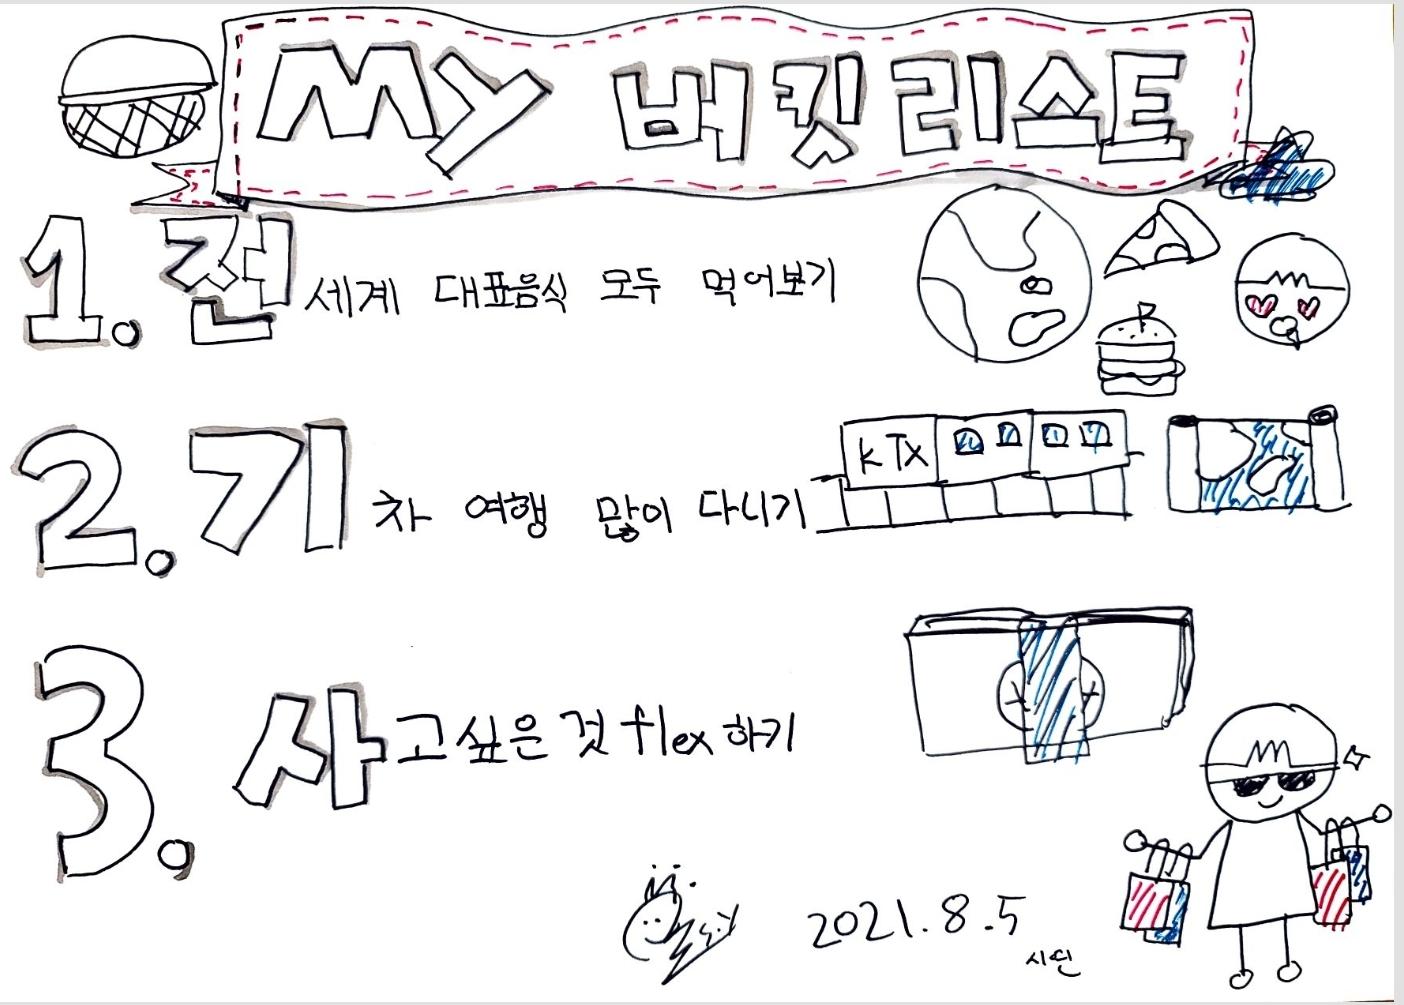 My 버킷리스트
1. 전세계 대표음식 모두 먹어보기
2. 기차 여행 많이 다니기
KTX
3. 사고싶은 것 flex 하기
S.Y
2021.8.5